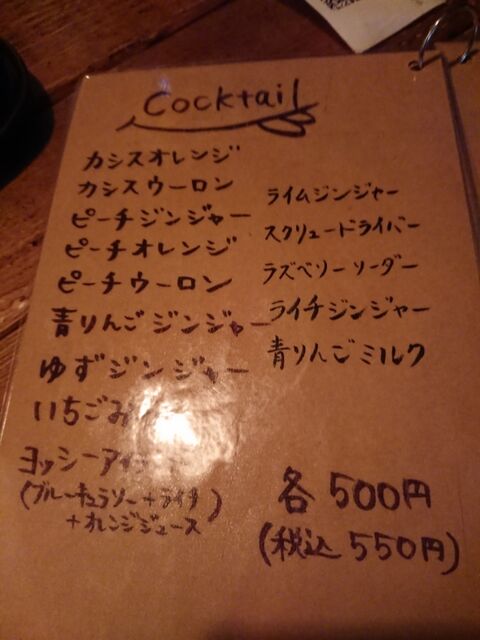 Cocktail
カシスオレンジ
カシスウーロン
ピーチジンジャー
ピーチオレンジ
ピーチウーロン
青りんごジンジャー
ゆずジンジャー
いちごみ
ヨッシーア
(ブルーキュラソー+ライチ)
+オレンジジュース
ライムジンジャー
スクリュードライバー
ラズベリーソーダー
ライチジンジャー
青りんごミルク
各500円
(税込550円)